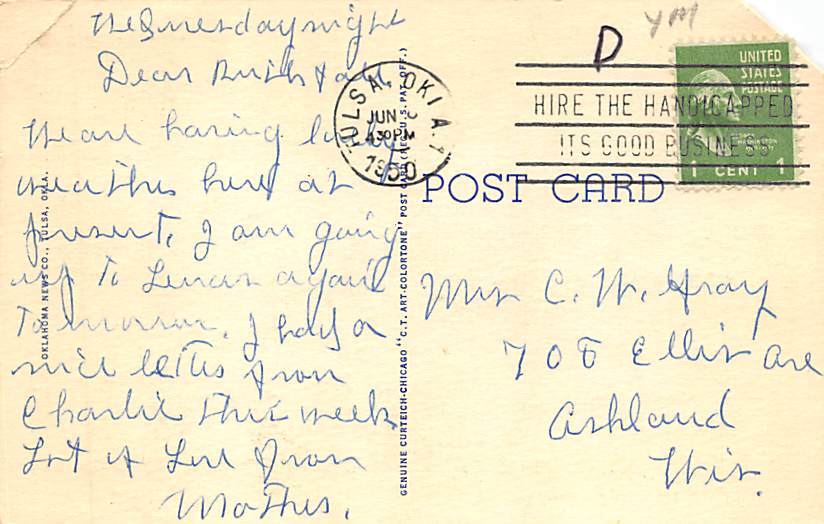 Wednesday night
Dear Ruth & all
We are having lovely
weather here at
present, I am going
up to again
Tomorrow. I had a
nice letter from
Charlie this week
Lot of Love from
Mother.
OKLAHOMA NEWS CO., TULSA, OKLA.
GENUINE CURTEICH-CHICAGO "C.T. ART-COLORTONE" POST CARD (REG. U.S. PAT. OFF.)
D
YM
TULSA, OKLA.
JUN
430PM
1950
HIRE THE HANDICAPPED
ITS GOOD BUSINESS
UNITED
STATES
POSTAGE
1 CENT 1
POST CARD
Mrs C. W. Gray
708 Ellis Ave
Ashland
Wis.